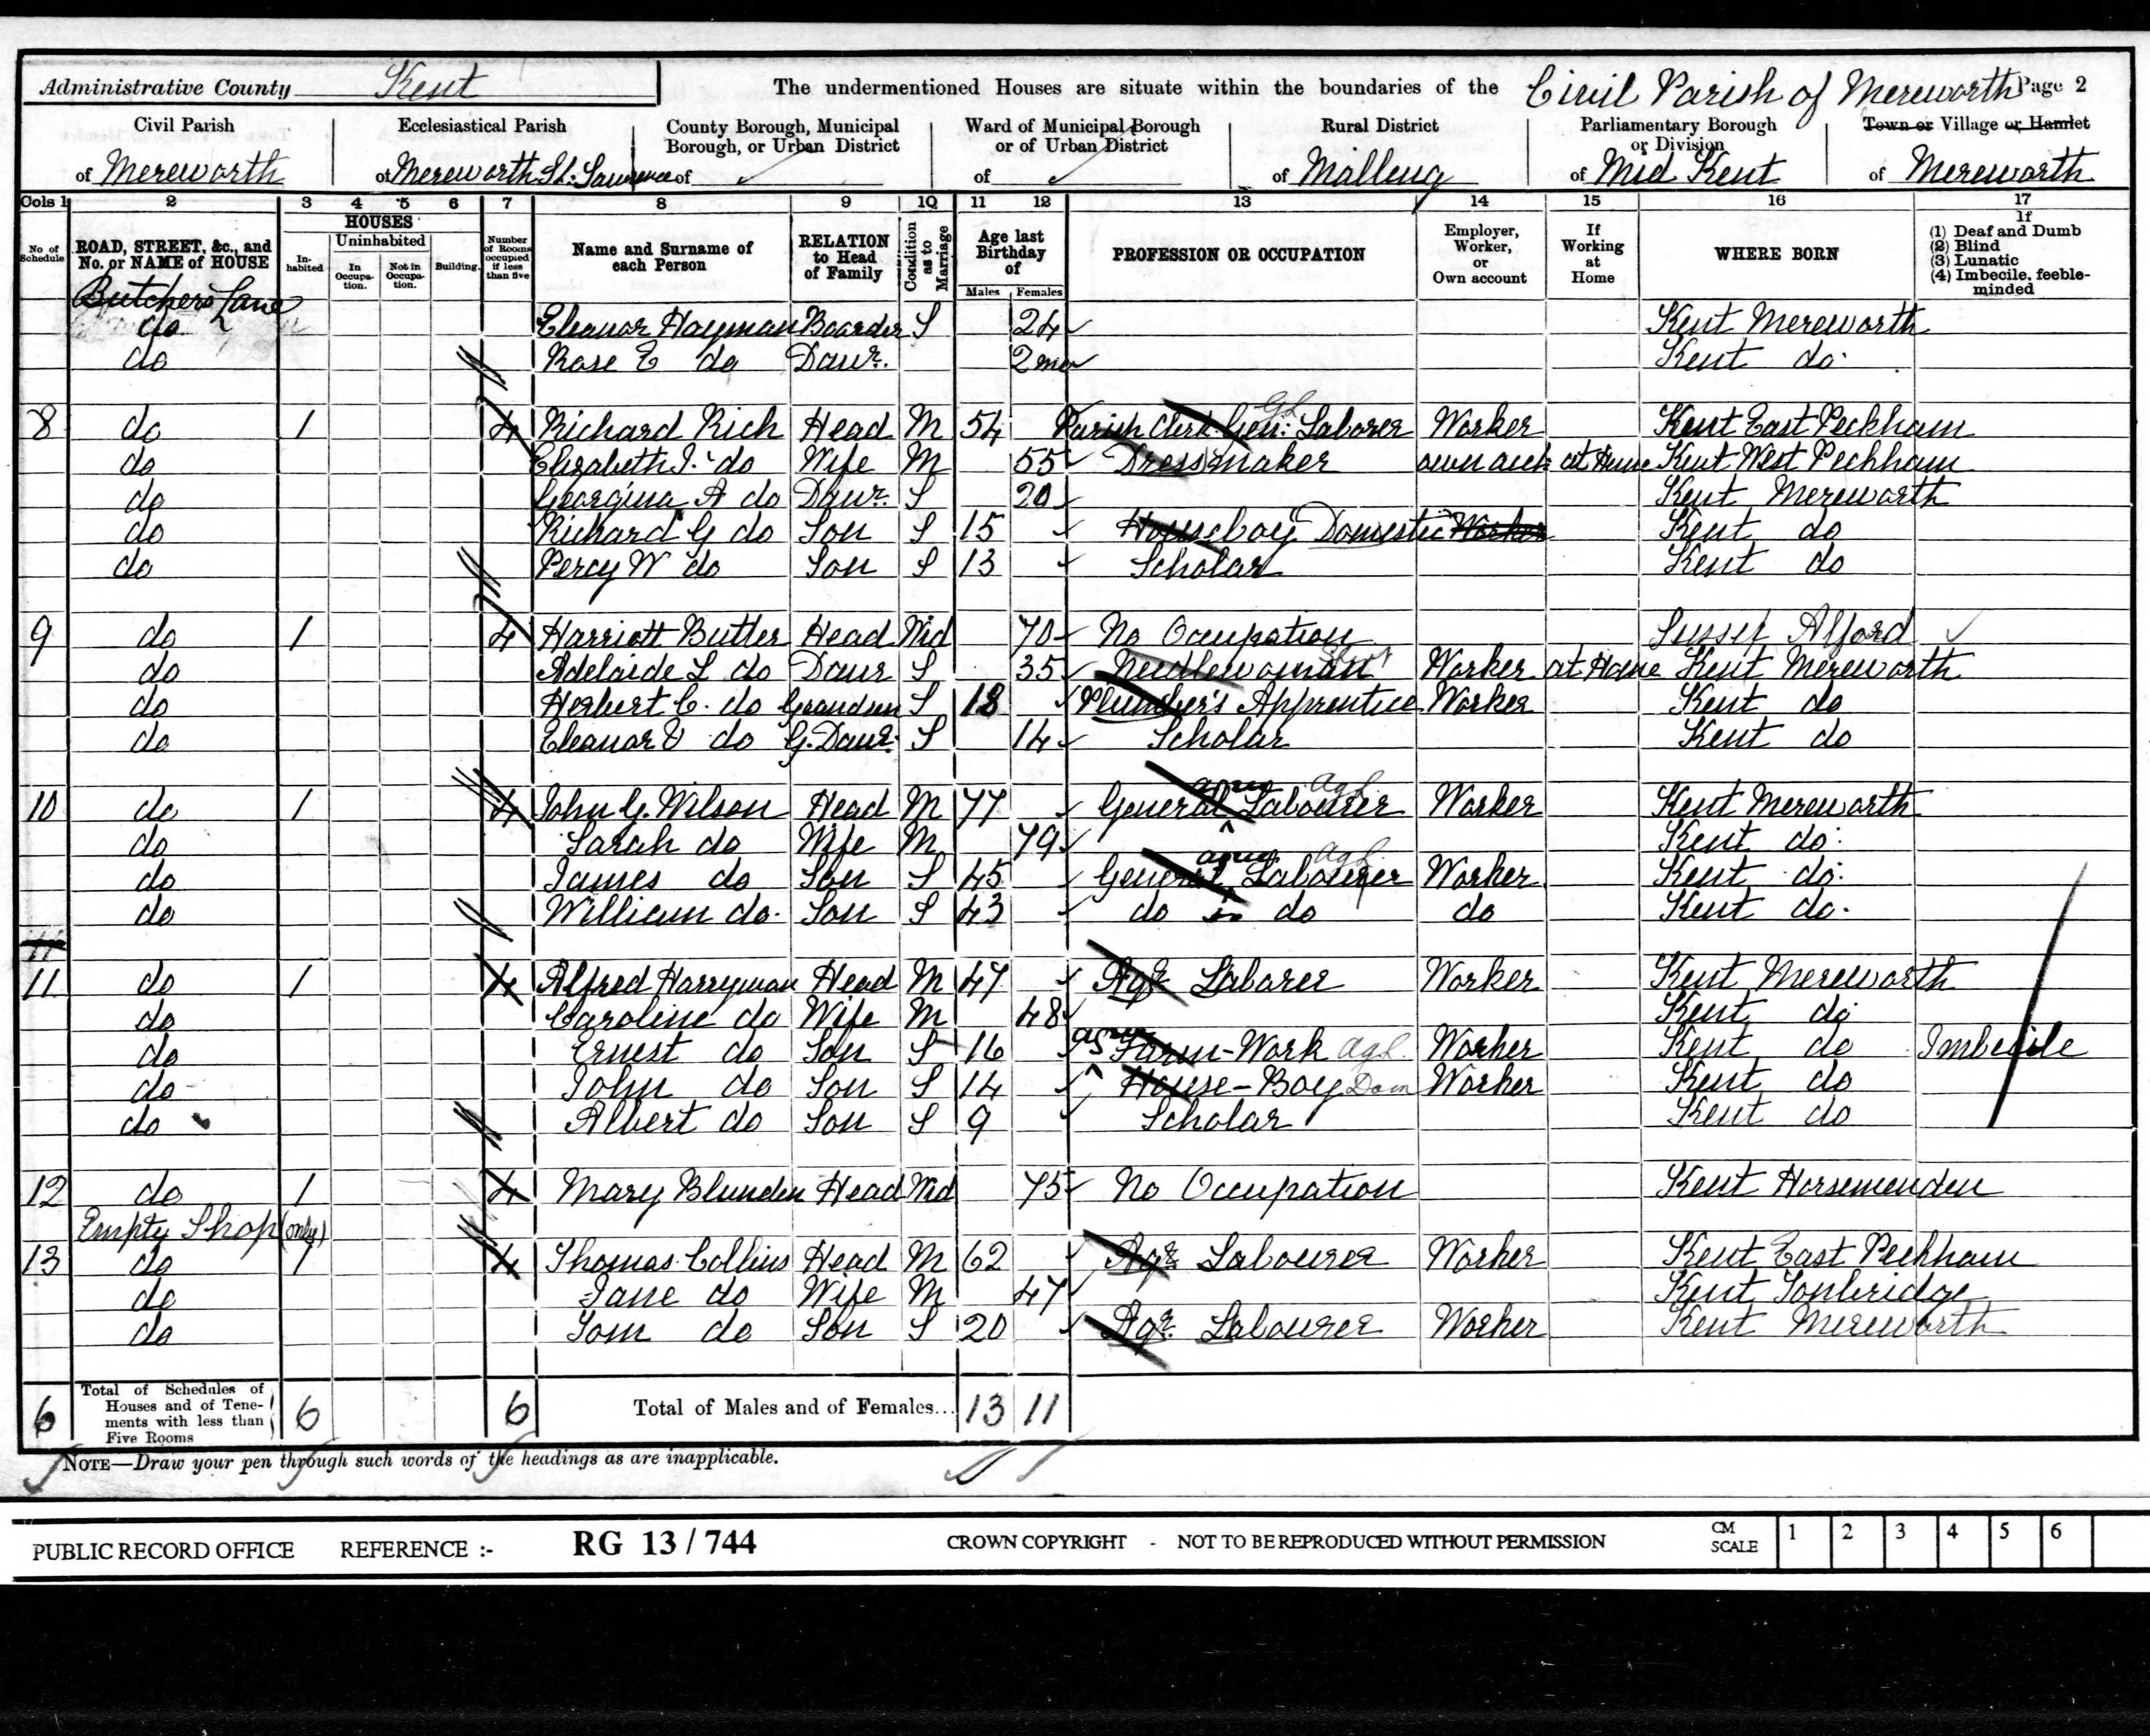 Administrative County Kent The undermentioned Houses are situate within the boundaries of the Civil Parish of Mereworth Page 2
Civil Parish Ecclesiastical Parish County Borough, Municipal Borough, or Urban District Ward of Municipal Borough or of Urban District Rural District Parliamentary Borough or Division Town or Village or Hamlet
of Mereworth of Mereworth St: Lawrence of of of Malling of Mid Kent of Mereworth
Cols 1 2 3 4 5 6 7 8 9 10 11 12 13 14 15 16 17
No of Schedule ROAD, STREET, &c., and No. or NAME of HOUSE HOUSES Inhabited Uninhabited In Occupation. Not in Occupation. Building. Number of Rooms occupied if less than five Name and Surname of each Person RELATION to Head of Family Condition as to Marriage Age last Birthday of Males Females PROFESSION OR OCCUPATION Employer, Worker, or Own account If Working at Home WHERE BORN If (1) Deaf and Dumb (2) Blind (3) Lunatic (4) Imbecile, feeble-minded
Butchers Lane
do Eleanor Hayman Boarder S 24 Kent Mereworth
do Rose E do Daur. 2 mo Kent do
8 do 1 4 Richard Rich Head M 54 Parish Clerk Gen: Laborer Worker Kent East Peckham
do Elizabeth J. do Wife M 55 Dressmaker own acct at Home Kent West Peckham
do Georgina A do Daur. S 20 Kent Mereworth
do Richard G do Son S 15 Houseboy Domestic Worker Kent do
do Percy W do Son S 13 Scholar Kent do
9 do 1 4 Harriott Butler Head Wid 70 No Occupation Sussex Alford
do Adelaide L do Daur S 35 Needlewoman Worker at Home Kent Mereworth
do Herbert C. do Grandson S 18 Plumber's Apprentice Worker Kent do
do Eleanor E do G. Daur. S 14 Scholar Kent do
10 do 1 4 John G. Wilson Head M 77 General agric Labourer AgL Worker Kent Mereworth
do Sarah do Wife M 79 Kent do
do James do Son S 45 General agric Labourer AgL Worker Kent do
do William do Son S 43 do do do Kent do
11
11 do 1 4 Alfred Harryman Head M 47 Agr Laborer Worker Kent Mereworth
do Caroline do Wife M 48 Kent do
do Ernest do Son S 16 agric Farm-Work AgL Worker Kent do Imbecile
do John do Son S 14 House-Boy Dom Worker Kent do
do Albert do Son S 9 Scholar Kent do
12 do 1 4 Mary Blunden Head Wid 75 No Occupation Kent Horsemenden
Empty Shop (only)
13 do 1 4 Thomas Collins Head M 62 Agr Labourer Worker Kent East Peckham
do Jane do Wife M 47 Kent Tonbridge
do Tom do Son S 20 Agr. Labourer Worker Kent Mereworth
6 Total of Schedules of Houses and of Tenements with less than Five Rooms 6 6 Total of Males and of Females... 13 11
NOTE—Draw your pen through such words of the headings as are inapplicable.
PUBLIC RECORD OFFICE REFERENCE :- RG 13 / 744 CROWN COPYRIGHT - NOT TO BE REPRODUCED WITHOUT PERMISSION CM SCALE 1 2 3 4 5 6